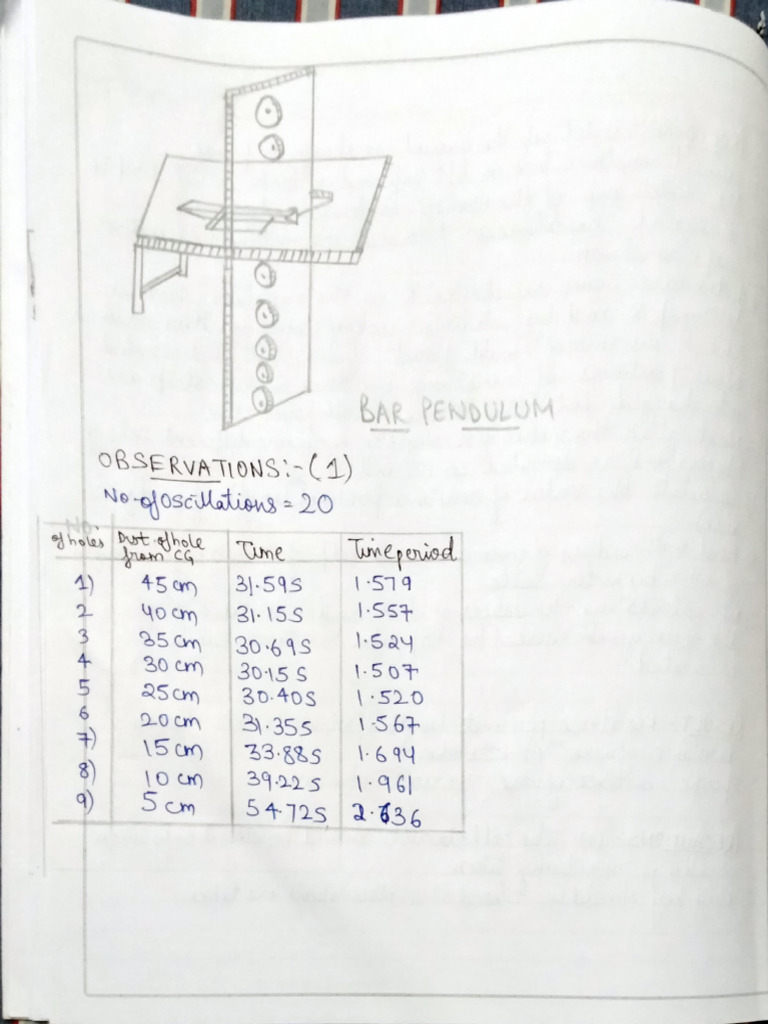 BAR PENDULUM
OBSERVATIONS:-(1)
No. of Oscillations = 20
No. of holes Dist. of hole from CG Time Timeperiod
1) 45 cm 31.59s 1.579
2 40 cm 31.15s 1.557
3 35 cm 30.69s 1.524
4 30 cm 30.15s 1.507
5 25 cm 30.40s 1.520
6 20 cm 31.35s 1.567
7) 15 cm 33.88s 1.694
8) 10 cm 39.22s 1.961
9) 5 cm 54.72s 2.636